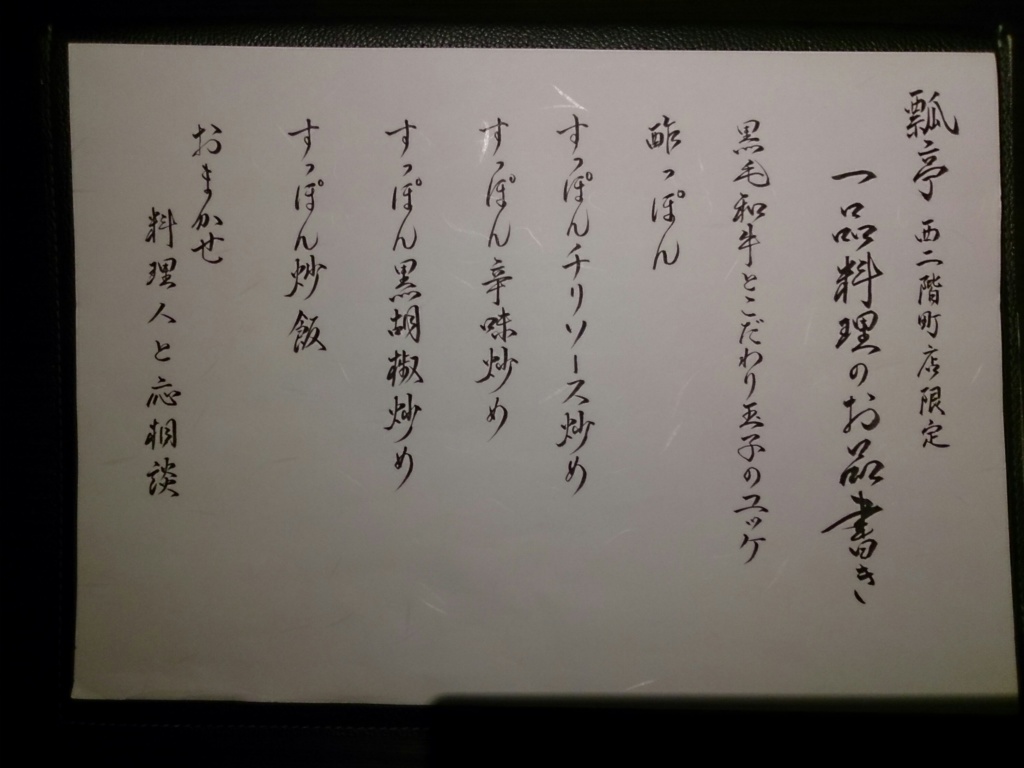 瓢亭 西二階町店限定
一品料理のお品書き
黒毛和牛とこだわり玉子のユッケ
酢っぽん
すっぽんチリソース炒め
すっぽん辛味炒め
すっぽん黒胡椒炒め
すっぽん炒飯
おまかせ
料理人と応相談